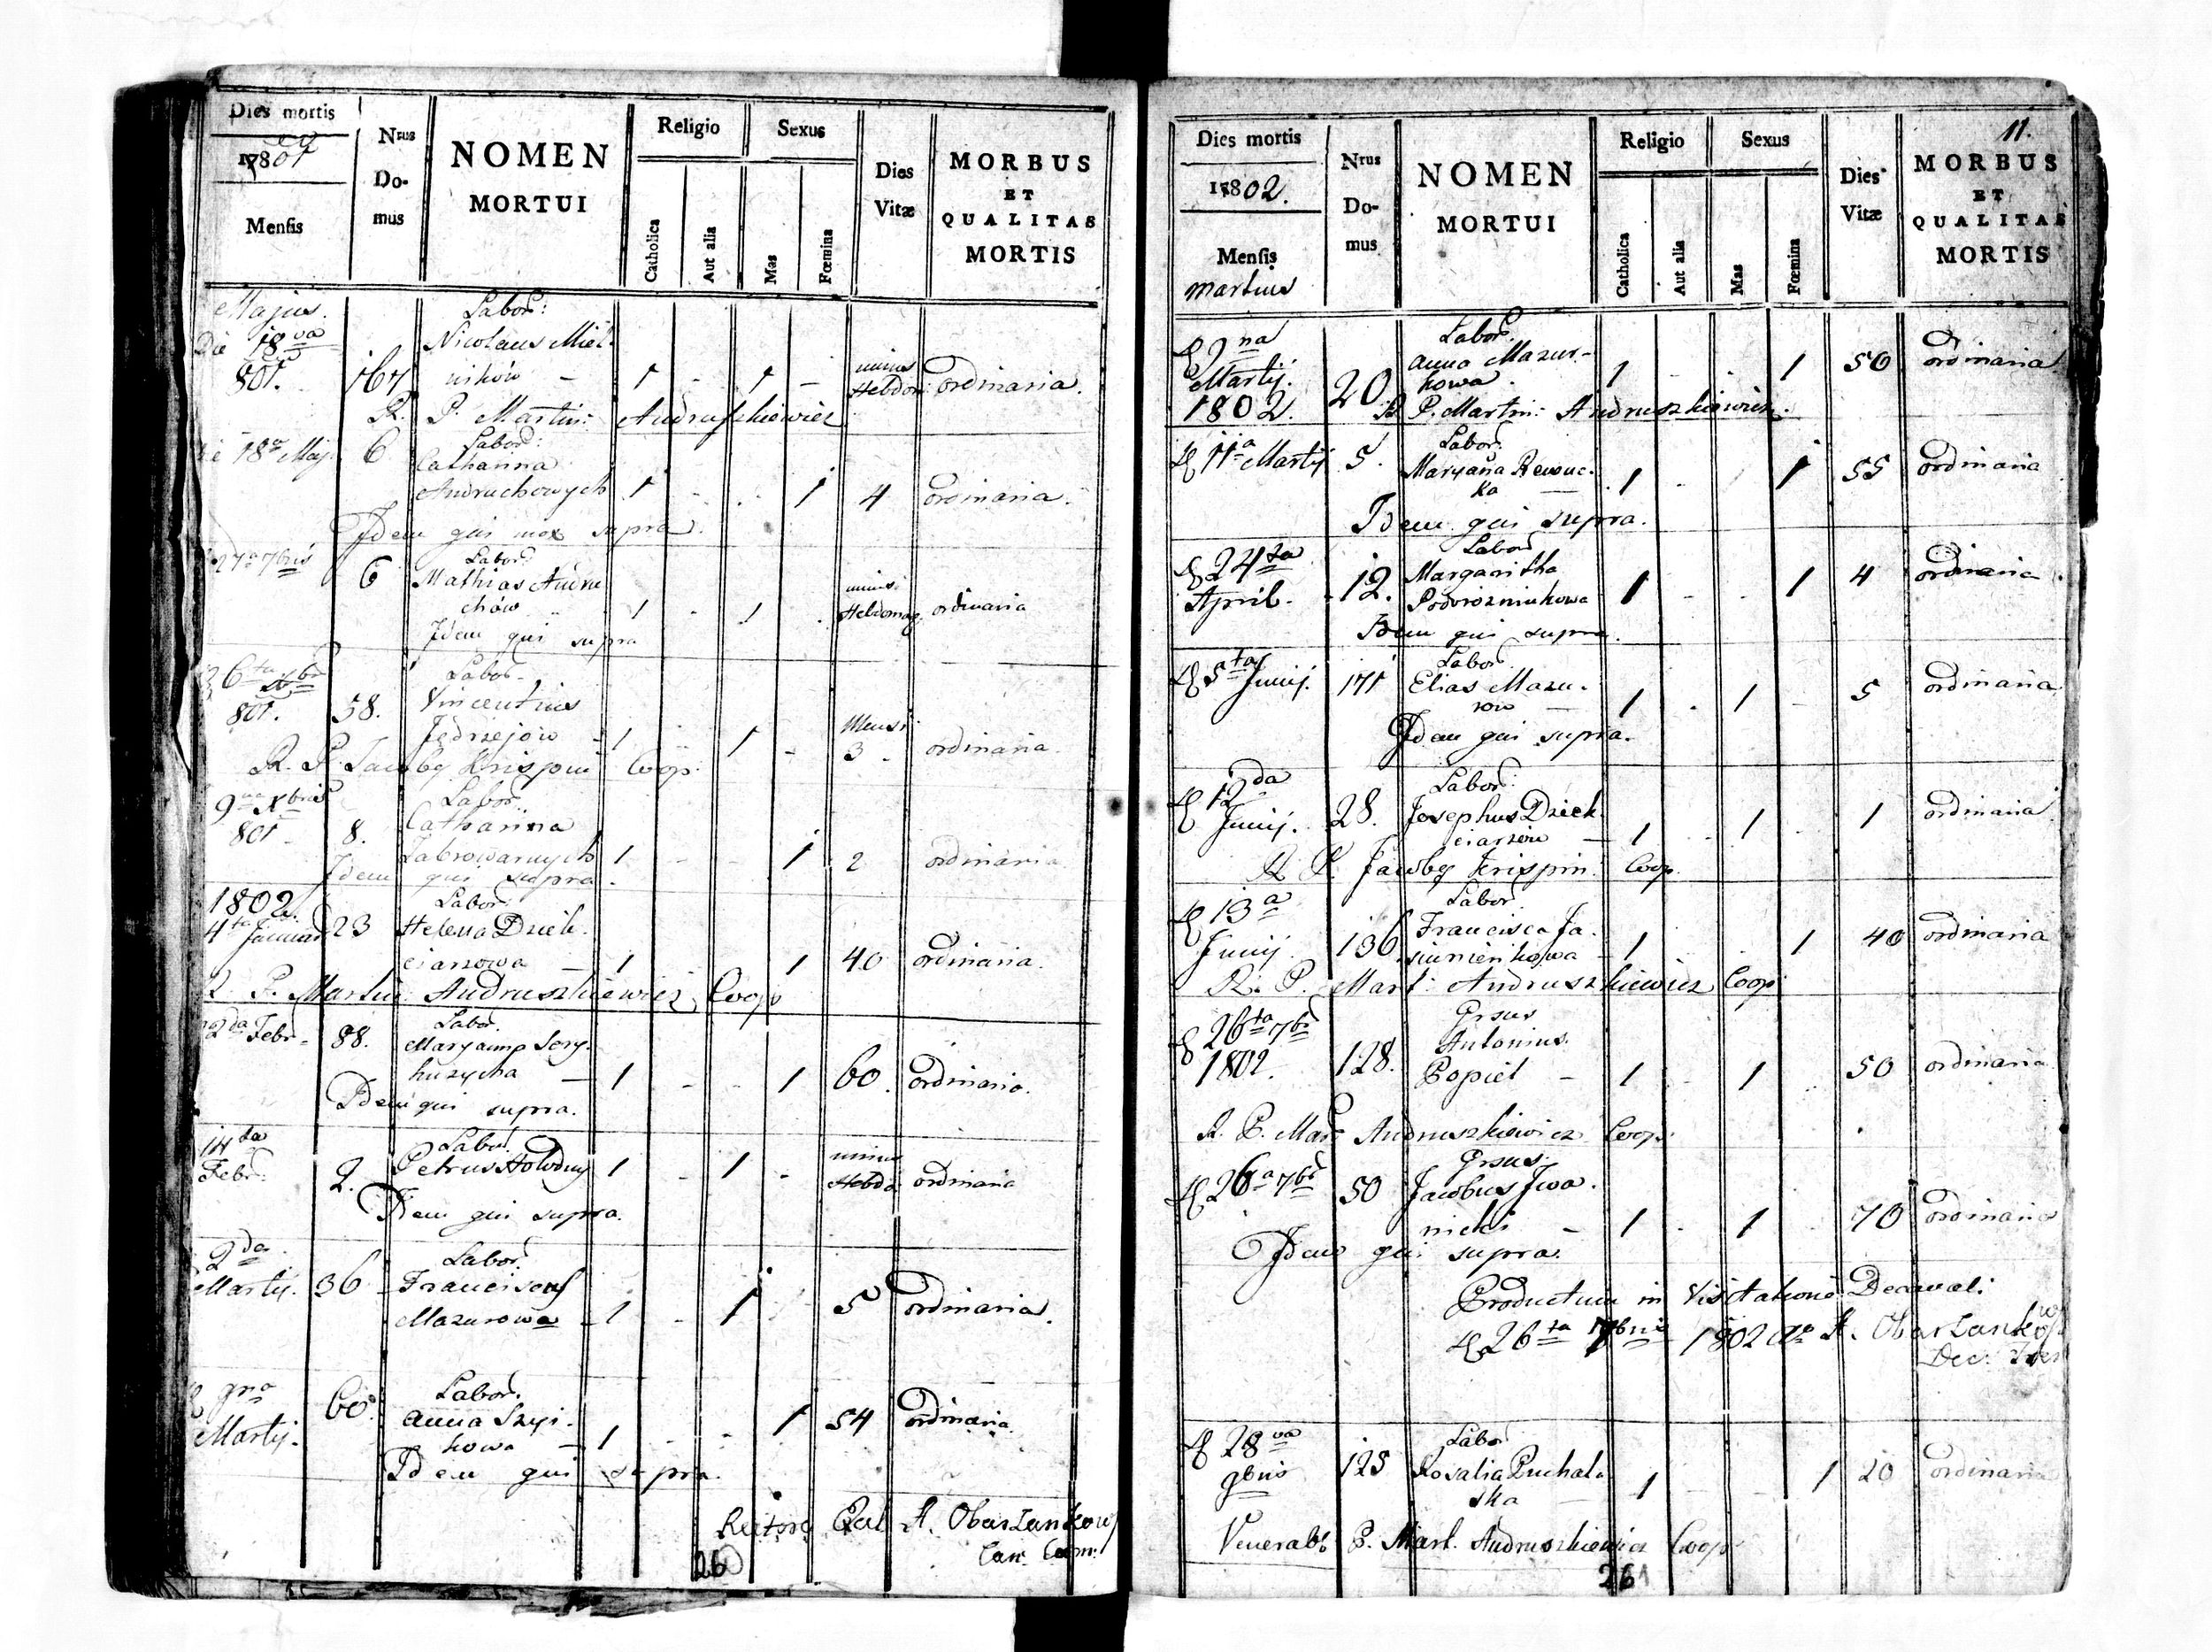 Dies mortis
1801
Mensis
Nrus
Do-
mus
NOMEN
MORTUI
Religio
Catholica
Aut alia
Sexus
Mas
Fœmina
Dies
Vitæ
MORBUS
ET
QUALITAS
MORTIS
Majus.
Labor:
Die 18va
Nicolaus Miel-
801. 167 ników – 1 - 1 – minus Hebdom: ordinaria.
R. P. Martin: Andruszkiewicz
Die 18va Maj. 6 Labor:
Catharina
Andruchowych 1 - . 1 4 ordinaria.
Idem qui mox supra.
27a 7bris 6 Labor:
Mathias Andru
chów 1 - 1 . minus Hebdomag. ordinaria
Idem qui supra
6ta Xbr
801. 58. Labor.
Vincentius
Jędrzejów – 1 1 - Mensi 3. ordinaria.
R. P. Jacoby Krispin Coop:
9na Xbris Labor.
801. 8. Catharina
Zabrowarnych 1 - - 1 2 ordinaria
Idem qui supra.
1802. Labor.
4ta Januar 23 Helena Dziek-
ciarzowa – 1 1 40 ordinaria.
R. P. Martin: Andruszkiewicz Coop
2da Febr. 88. Labor.
Maryanna
huzycha – 1 - - 1 60. ordinaria.
Idem qui supra.
14ta Labor.
Febr. 2. Petrus Hołodny 1 - 1 - minus Hebdo: ordinaria
Idem qui supra.
2da Labor.
Martij. 36 Francisca
Mazurowa – 1 - 1 5 ordinaria.
9na Labor.
Martij. 60. Anna Szyi-
kowa – 1 - - 1 54 ordinaria.
Idem qui supra.
A. Obarzankow
Can:
260
11.
Dies mortis
1802.
Mensis
Martius
Nrus
Do-
mus
NOMEN
MORTUI
Religio
Catholica
Aut alia
Sexus
Mas
Fœmina
Dies
Vitæ
MORBUS
ET
QUALITAS
MORTIS
D 9na Labor.
Martij. Anna Mazur-
1802. 20 kowa. 1 - . 1 50 ordinaria
R P. Martin: Andruszkiewicz.
D 11a Martij 5. Labor.
Maryana Rewuc-
ka — 1 - 1 55 ordinaria
Idem qui supra.
D 24ta Labor
April. 12. Margaritha
Podorozniukowa 1 - - 1 4 ordinaria.
Idem qui supra.
D 5ta Junij. 171 Labor.
Elias Mazu-
row — 1 . 1 - 5 ordinaria
Idem qui supra.
D 12da Labor:
Junij. 28. Josephus Dziek-
ciarzów — 1 - 1 - 1 ordinaria
R P. Jacoby Krispin Coop.
D 13a Labor.
Junij 136 Francisca Ja-
siunienkowa – 1 . 1 40 ordinaria
R. P. Mart: Andruszkiewicz Coop
D 26ta 7br Grsus
1802. 128. Antonius
Popiel – 1 - 1 50 ordinaria
R. P. Mart Andruszkiewicz Coop:
D 26a 7br 50 Grsus.
Jacobus Iwa-
nicki – 1 - 1 - 70 ordinaria
Idem qui supra.
Productum in Visitatione Decanali
D 26ta 7bris 1802 Ao A. Obarzankow
Dec:
D 28va Labor
9bris 125 Rosalia Puchal-
ska 1 - - 1 20 ordinaria
Venerab: P. Mart. Andruszkiewicz Coop
261